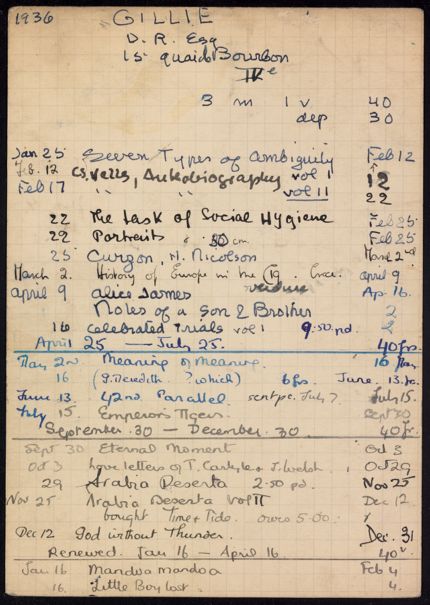 1936 GILLIE
D. R. Esq
15 quai de Bourbon
IVe
3 m 1 v 40
dep 30
Jan 25 Seven Types of Ambiguity Feb 12
Feb. 12 Wells, Autobiography vol I 12
Feb 17 " " vol II 22
22 The task of Social Hygiene Feb 25
22 Portraits Feb 25
25 Curzon, H. Nicolson March 2nd
March 2. History of Europe in the C19. Croce. april 9
april 9 alice James Ap. 16.
Notes of a Son & Brother 2
16 celebrated Trials vol 1 9.50 pd. 2
April 25 — July 25. 40 frs.
May 2nd Meaning of Meaning. 16 May
16 (G. Meredith ? which) 6 frs. June. 13.
June 13. 42nd Parallel sent pc. July 7. July 15.
July 15. Emperor's Tigers. Sept 30
September. 30 — December. 30 40 fr.
Sept 30 Eternal Moment Oct 3
Oct 3 love letters of T. Carlyle & J. Welsh. 1 Oct 29
29 Arabia Deserta 2.50 pd. Nov 25
Nov 25 Arabia Deserta Vol II Dec 12.
bought Time & Tide. owes 5.00
Dec 12 God without Thunder. Dec. 31
Renewed. Jan 16 — April 16. 40
Jan 16 Mandoa mandoa Feb 4
16. Little Boy lost. 4.